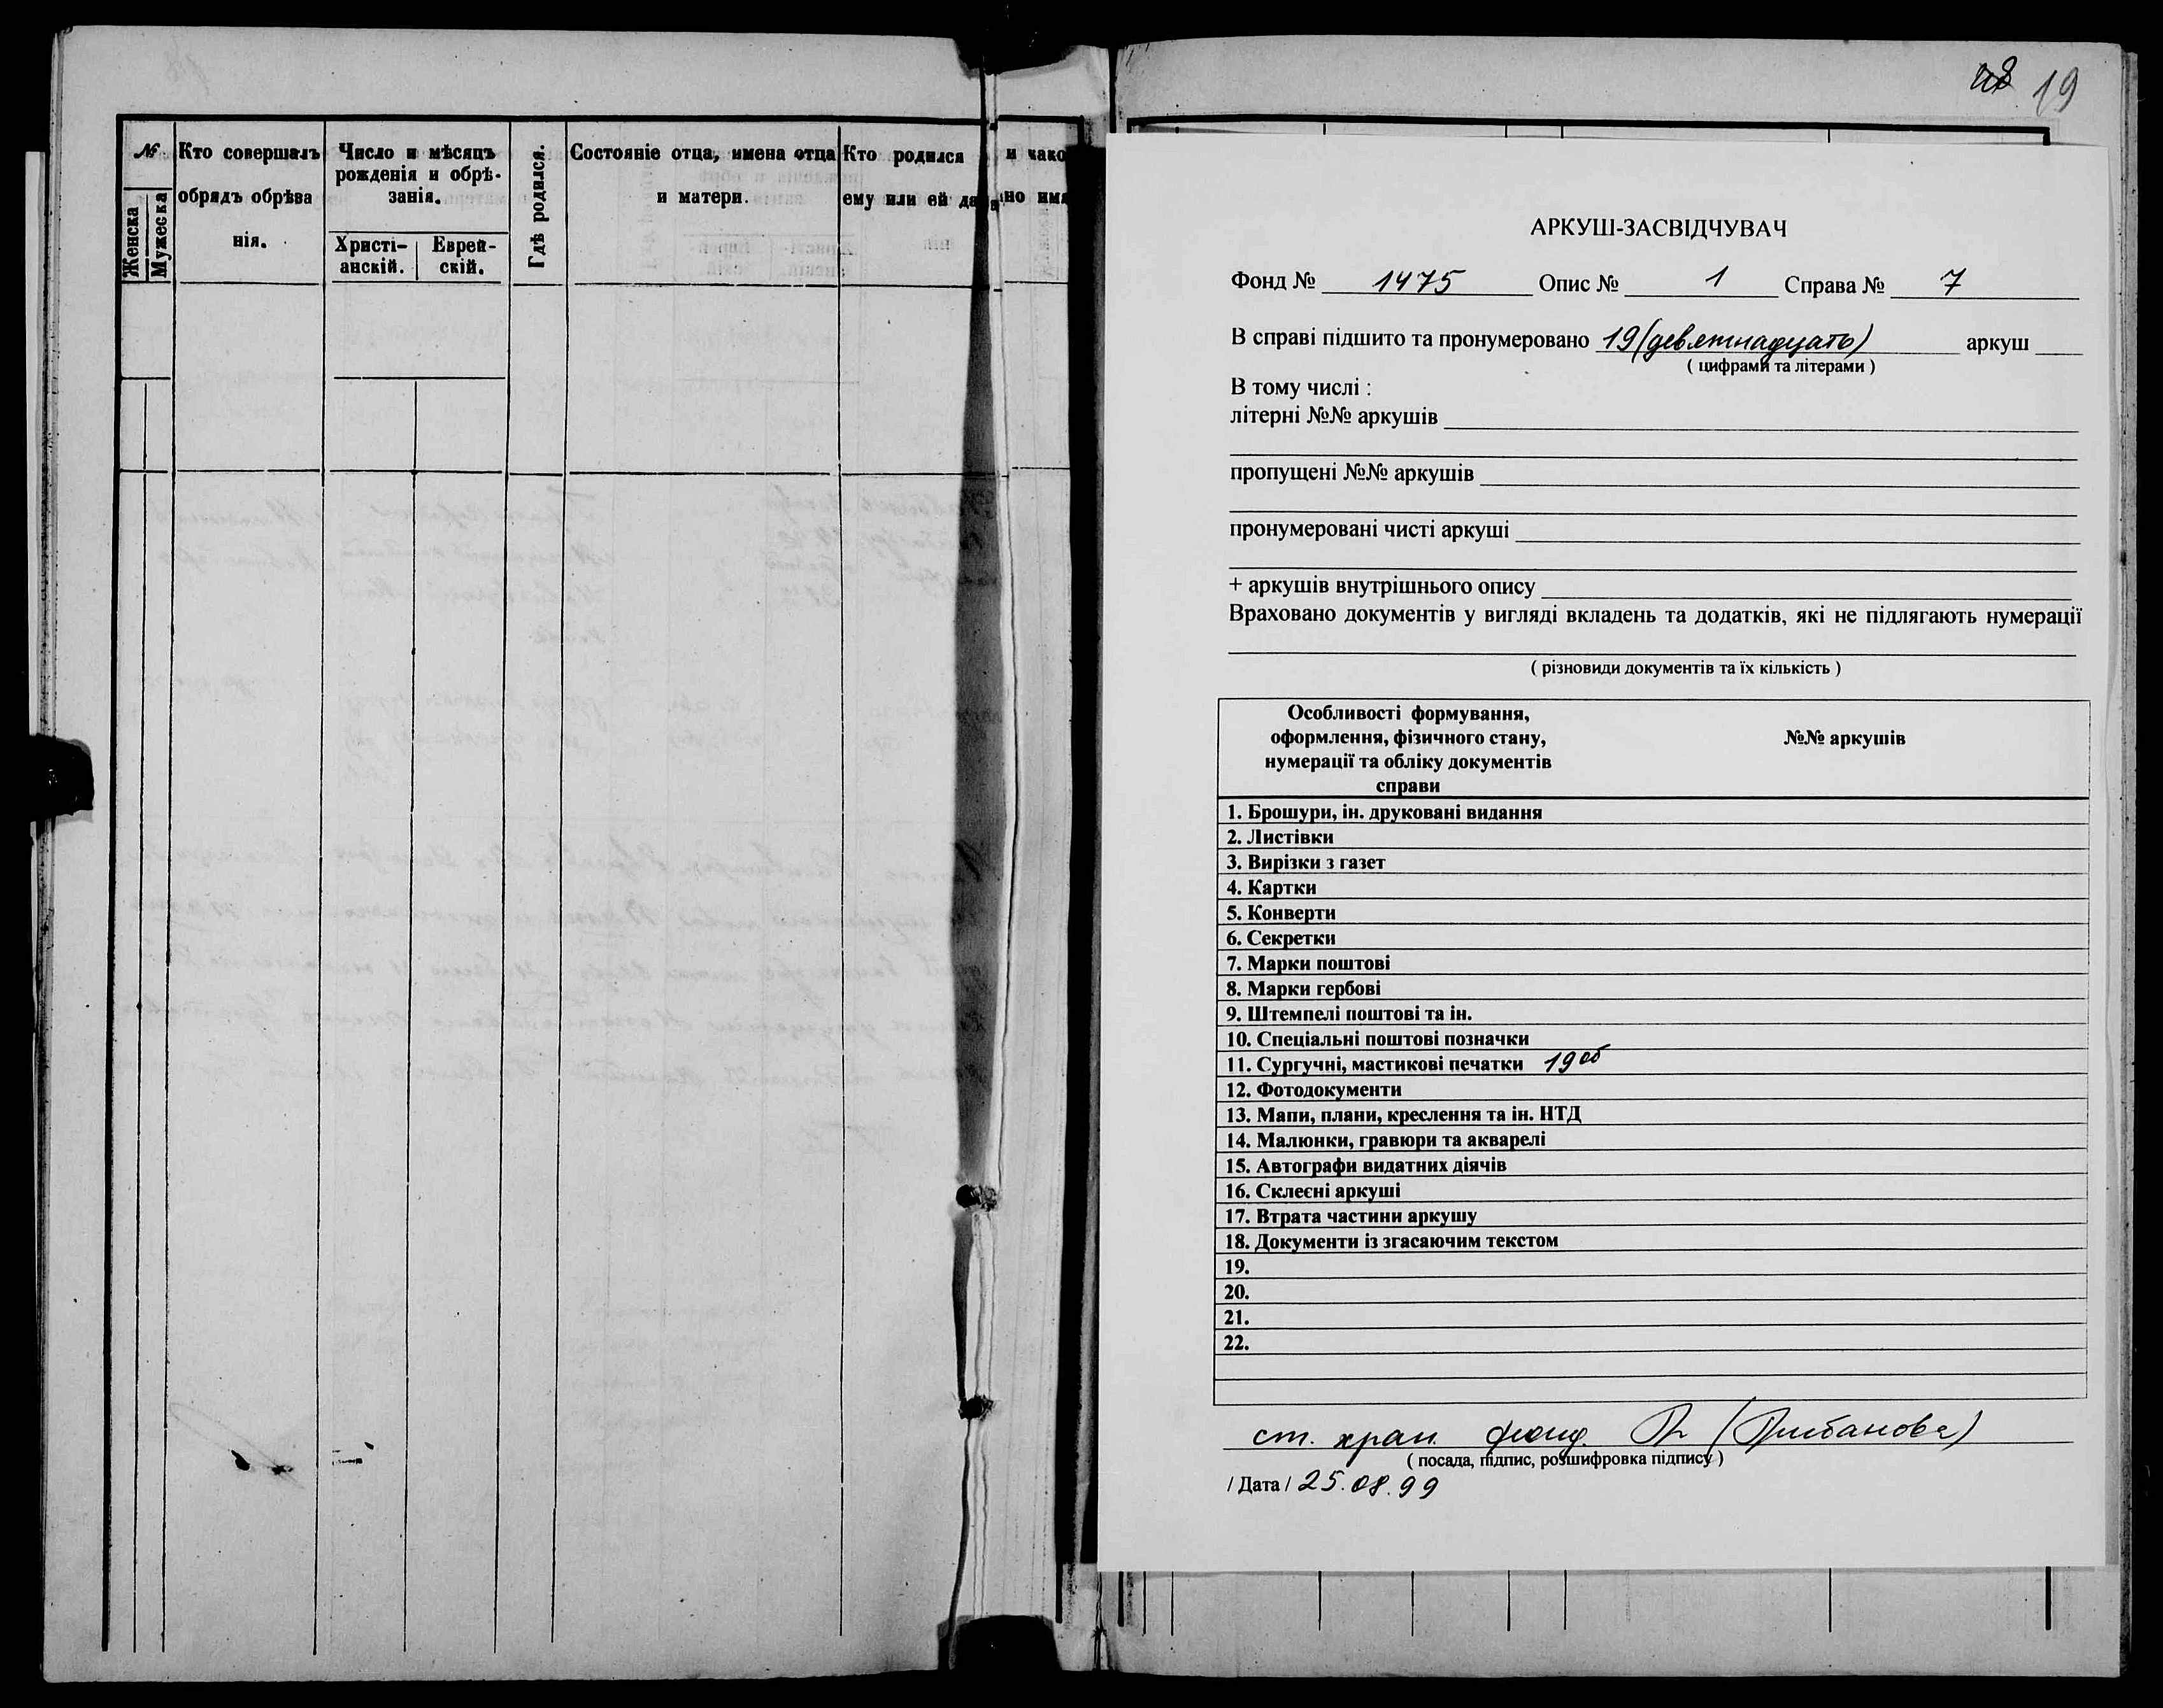 №
Женска
Мужеска
Кто совершалъ
обрядъ обрѣза
нія.
Число и мѣсяцъ
рожденія и обрѣ-
занія.
Христі-
анскій.
Еврей-
скій.
Гдѣ родился.
Состояніе отца, имена отца
и матери.
Кто родился и како
ему или ей дано имя
19
АРКУШ-ЗАСВІДЧУВАЧ
Фонд № 1475 Опис № 1 Справа № 7
В справі підшито та пронумеровано 19 (девятнадцать) аркуш
( цифрами та літерами )
В тому числі :
літерні №№ аркушів
пропущені №№ аркушів
пронумеровані чисті аркуші
+ аркушів внутрішнього опису
Враховано документів у вигляді вкладень та додатків, які не підлягають нумерації
( різновиди документів та їх кількість )
Особливості формування,
оформлення, фізичного стану,
нумерації та обліку документів
справи
№№ аркушів
1. Брошури, ін. друковані видання
2. Листівки
3. Вирізки з газет
4. Картки
5. Конверти
6. Секретки
7. Марки поштові
8. Марки гербові
9. Штемпелі поштові та ін.
10. Спеціальні поштові позначки
11. Сургучні, мастикові печатки 19 об
12. Фотодокументи
13. Мапи, плани, креслення та ін. НТД
14. Малюнки, гравюри та акварелі
15. Автографи видатних діячів
16. Склеєні аркуші
17. Втрата частини аркушу
18. Документи із згасаючим текстом
19.
20.
21.
22.
ст. хран. фонд.
( посада, підпис, розшифровка підпису )
/ Дата / 25.08.99